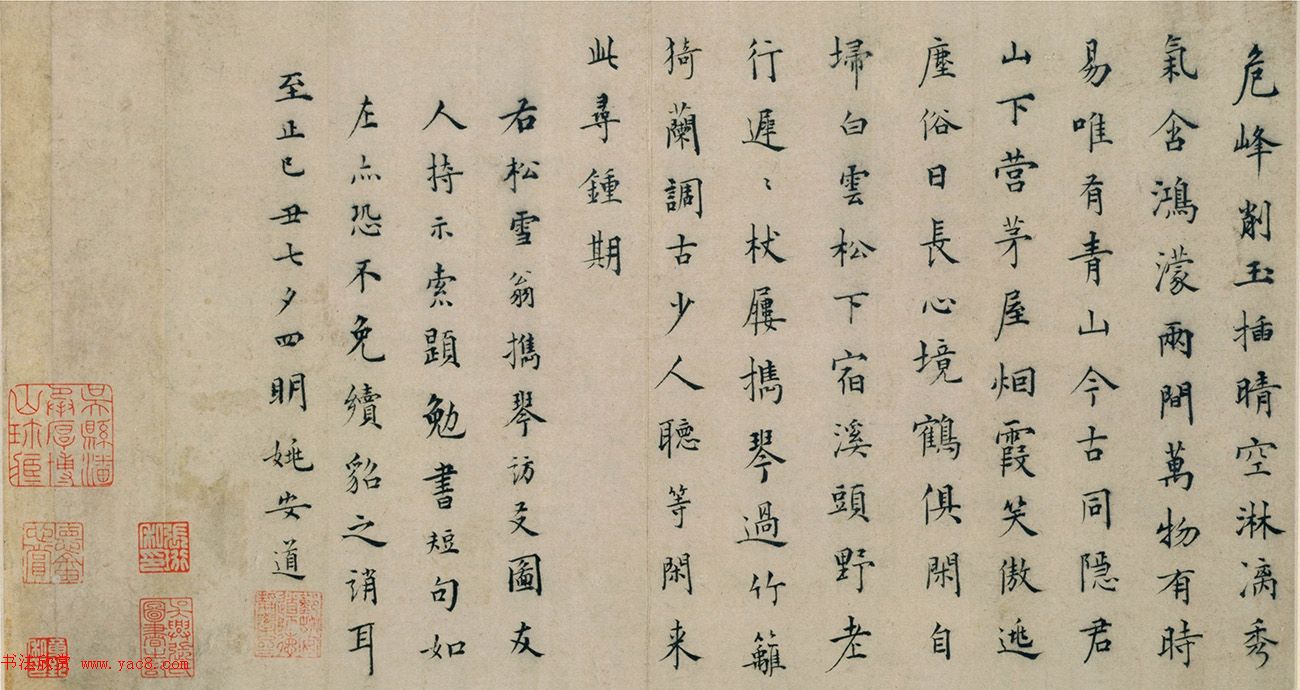 危峰削玉插晴空淋漓秀
氣含鴻濛兩間萬物有時
易唯有青山今古同隱君
山下营茅屋烟霞笑傲逃
塵俗日長心境鶴俱閑自
埽白雲松下宿溪頭野老
行遲〻杖屨攜琴過竹籬
猗蘭調古少人聽等閑来
此尋鍾期
右松雪翁攜琴訪友圖友
人持示索題勉書短句如
左亦恐不免續貂之誚耳
至正己丑七夕四明姚安道
书法欣赏 www.yac8.com